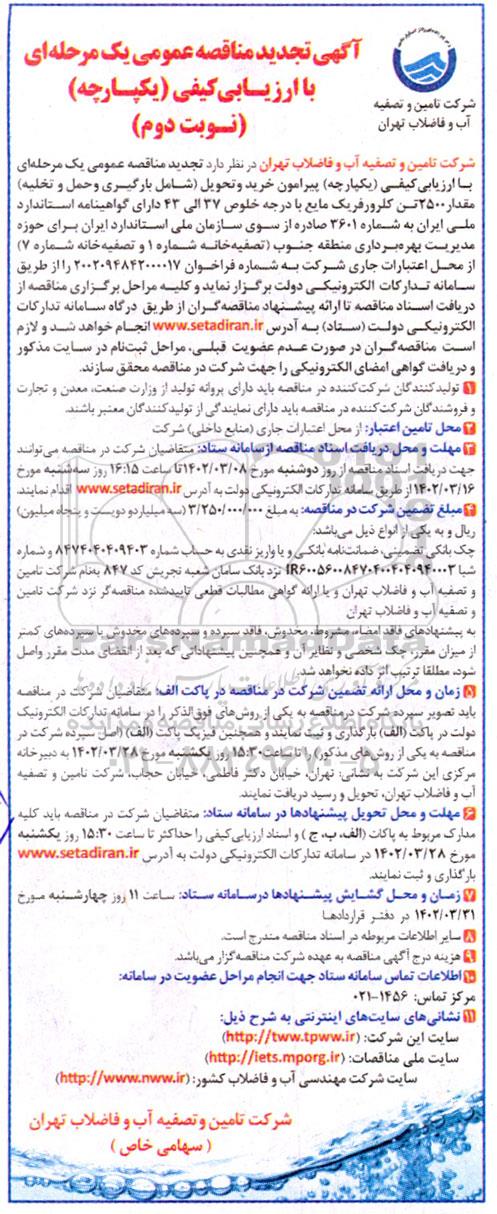 شرکت تامین و تصفیه
آب و فاضلاب تهران
آگهی تجدید مناقصه عمومی یک مرحله‌ای
با ارزیـابی کیفی (یکپارچه)
(نـوبت دوم)
شرکت تامین و تصفیه آب و فاضلاب تهران در نظر دارد تجدید مناقصه عمومی یک مرحله‌ای
بـا ارزیابی کیفـی (یکپارچه) پیرامون خرید و تحویل (شـامل بارگیـری و حمل و تخلیه)
مقدار ۲۵۰۰ تـن کلرورفریک مایع با درجه خلوص ۳۷ الی ۴۳ دارای گواهینامه استاندارد
ملـی ایران به شماره ۳۶۰۱ صادره از سوی سازمان ملی استاندارد ایران برای حوزه
مدیریـت بهره‌بـرداری منطقه جنـوب (تصفیه‌خانـه شـماره ۱ و تصفیه‌خانه شماره ۷)
از محـل اعتبارات جاری شـرکت بـه شـماره فراخـوان ۲۰۰۲۰۹۴۸۴۲۰۰۰۰۱۷ را از طریق
سامانه تـدارکات الکترونیکـی دولـت برگزار نماید و کلیـه مراحل برگزاری مناقصه از
دریافت اسـناد مناقصه تا ارائه پیشـنهاد مناقصه‌گـران از طریق درگاه سـامانه تدارکات
الکترونیکی دولت (ستاد) به آدرس www.setadiran.ir انجـام خواهد شـد و لازم
است مناقصه‌گـران در صورت عـدم عضویت قبلـی، مراحل ثبت‌نام در سـایت مذکور
و دریافت گواهی امضای الکترونیکی را جهت شرکت در مناقصه محقق سازند.
۱ تولیدکنندگان شرکت‌کننده در مناقصه باید دارای پروانه تولید از وزارت صنعت، معدن و تجارت
و فروشندگان شرکت‌کننده در مناقصه باید دارای نمایندگی از تولیدکنندگان معتبر باشند.
۲ محل تامین اعتبار: از محل اعتبارات جاری (منابع داخلی) شرکت
۳ مهلت و محل دریافت اسناد مناقصه از سامانه ستاد: متقاضیان شرکت در مناقصه می‌توانند
جهت دریافت اسناد مناقصه از روز دوشنبه مورخ ۱۴۰۲/۰۳/۰۸ تا ساعت ۱۶:۱۵ روز سه‌شنبه مورخ
۱۴۰۲/۰۳/۱۶ از طریق سامانه تدارکات الکترونیکی دولت به آدرس www.setadiran.ir اقدام نمایند.
۴ مبلغ تضمین شرکت در مناقصه: به مبلغ ۳/۲۵۰/۰۰۰/۰۰۰ (سه میلیارد و دویست و پنجاه میلیون)
ریال و به یکی از انواع ذیل می‌باشد:
چک بانکی تضمینی، ضمانت‌نامه بانکـی و یا واریز نقدی به حساب شماره ۸۴۷۴۰۴۰۴۰۹۴۰۳ و شماره
شبا نزد بانک سامان شعبه تجریش کد ۸۴۷ به‌نام شرکت تامین
و تصفیه آب و فاضلاب تهران و یا ارائه گواهی مطالبات قطعی تاییدشده مناقصه‌گر نزد شرکت تامین
و تصفیه آب و فاضلاب تهران
به پیشنهادهای فاقد امضاء، مشروط، مخدوش، فاقد سپرده و سپرده‌های مخدوش یا سپرده‌های کمتر
از میزان مقرر، چک شخصی و نظایر آن و همچنین پیشنهاداتی که بعد از انقضای مدت مقرر واصل
شود، مطلقا ترتیب اثر داده نخواهد شد.
۵ زمان و محل ارائه تضمین شرکت در مناقصه در پاکت الف: متقاضیان شرکت در مناقصه
باید تصویر سپرده شرکت در مناقصه به یکی از روش‌های فوق‌الذکر را در سامانه تدارکات الکترونیک
دولت در پاکت (الف) بارگذاری و ثبت نمایند و همچنین فیزیک پاکت (الف) (اصل سپرده شرکت در
مناقصه به یکی از روش‌های مذکور) را تا ساعت ۱۵:۳۰ روز یکشنبه مورخ ۱۴۰۲/۰۳/۲۸ به دبیرخانه
مرکزی این شرکت به نشانی: تهران، خیابان دکتر فاطمی، خیابان حجاب، شرکت تامین و تصفیه
آب و فاضلاب تهران، تحویل و رسید دریافت نمایند.
۶ مهلت و محل تحویل پیشنهادها در سامانه ستاد: متقاضیان شرکت در مناقصه باید کلیه
مدارک مربوط به پاکات (الف، ب، ج) و اسناد ارزیابی کیفی را حداکثر تا ساعت ۱۵:۳۰ روز یکشنبه
مورخ ۱۴۰۲/۰۳/۲۸ در سامانه تدارکات الکترونیکی دولت به آدرس www.setadiran.ir
بارگذاری و ثبت نمایند.
۷ زمـان و محـل گشـایش پیشـنهادها در سامانه ستـاد: سـاعت ۱۱ روز چهارشـنبه مـورخ
۱۴۰۲/۰۳/۳۱ در دفتـر قراردادهـا
۸ سایر اطلاعات مربوطه در اسناد مناقصه مندرج است.
۹ هزینه درج آگهی مناقصه به عهده شرکت مناقصه‌گزار می‌باشد.
۱۰ اطلاعات تماس سامانه ستاد جهت انجام مراحل عضویت در سامانه:
مرکز تماس: ۱۴۵۶-۰۲۱
۱۱ نشانی‌های سایت‌های اینترنتی به شرح ذیل:
سایت این شرکت: (http://tww.tpww.ir)
سایت ملی مناقصات: (http://iets.mporg.ir)
سایت شرکت مهندسی آب و فاضلاب کشور: (http://www.nww.ir)
شرکت تامین و تصفیه آب و فاضلاب تهران
(سهامی خاص)